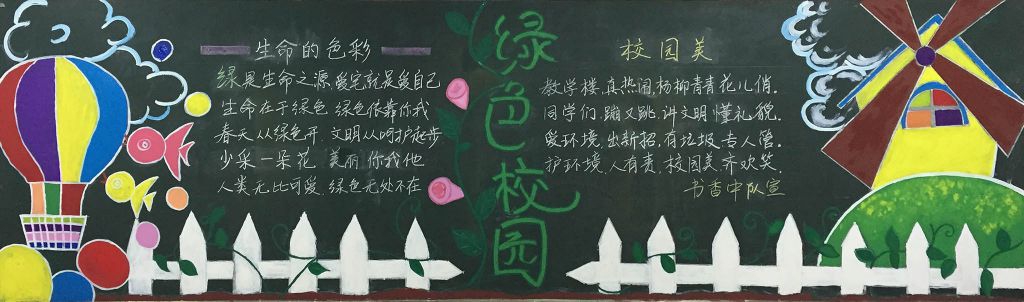 生命的色彩
绿是生命之源 爱它就是爱自己
生命在于绿色 绿色依靠你我
春天从绿色开 文明从呵护起步
少采一朵花 美丽你我他
人类无比可爱 绿色无处不在
绿色校园
校园美
教学楼,真热闹,杨柳青青花儿俏.
同学们,蹦又跳,讲文明懂礼貌.
爱环境,出新招,有垃圾专人管.
护环境,人有责,校园美齐欢笑.
书香中队宣